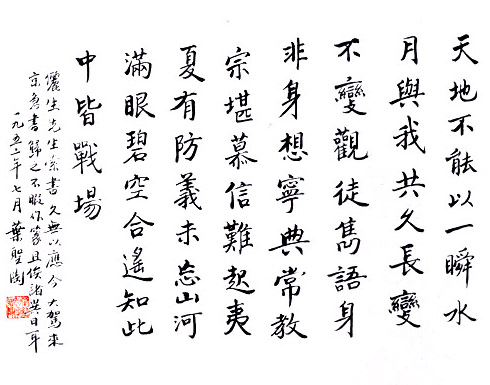 天地不能以一瞬水
月與我共久長變
不變觀徒雋語身
非身想寧典常教
宗堪慕信難起夷
夏有防義未忘山河
滿眼碧空合遙知此
中皆戰場
儷生先生索書久無以應今大駕來
京急書歸之不暇作篆且俟諸異日耳
一九五年七月葉聖陶